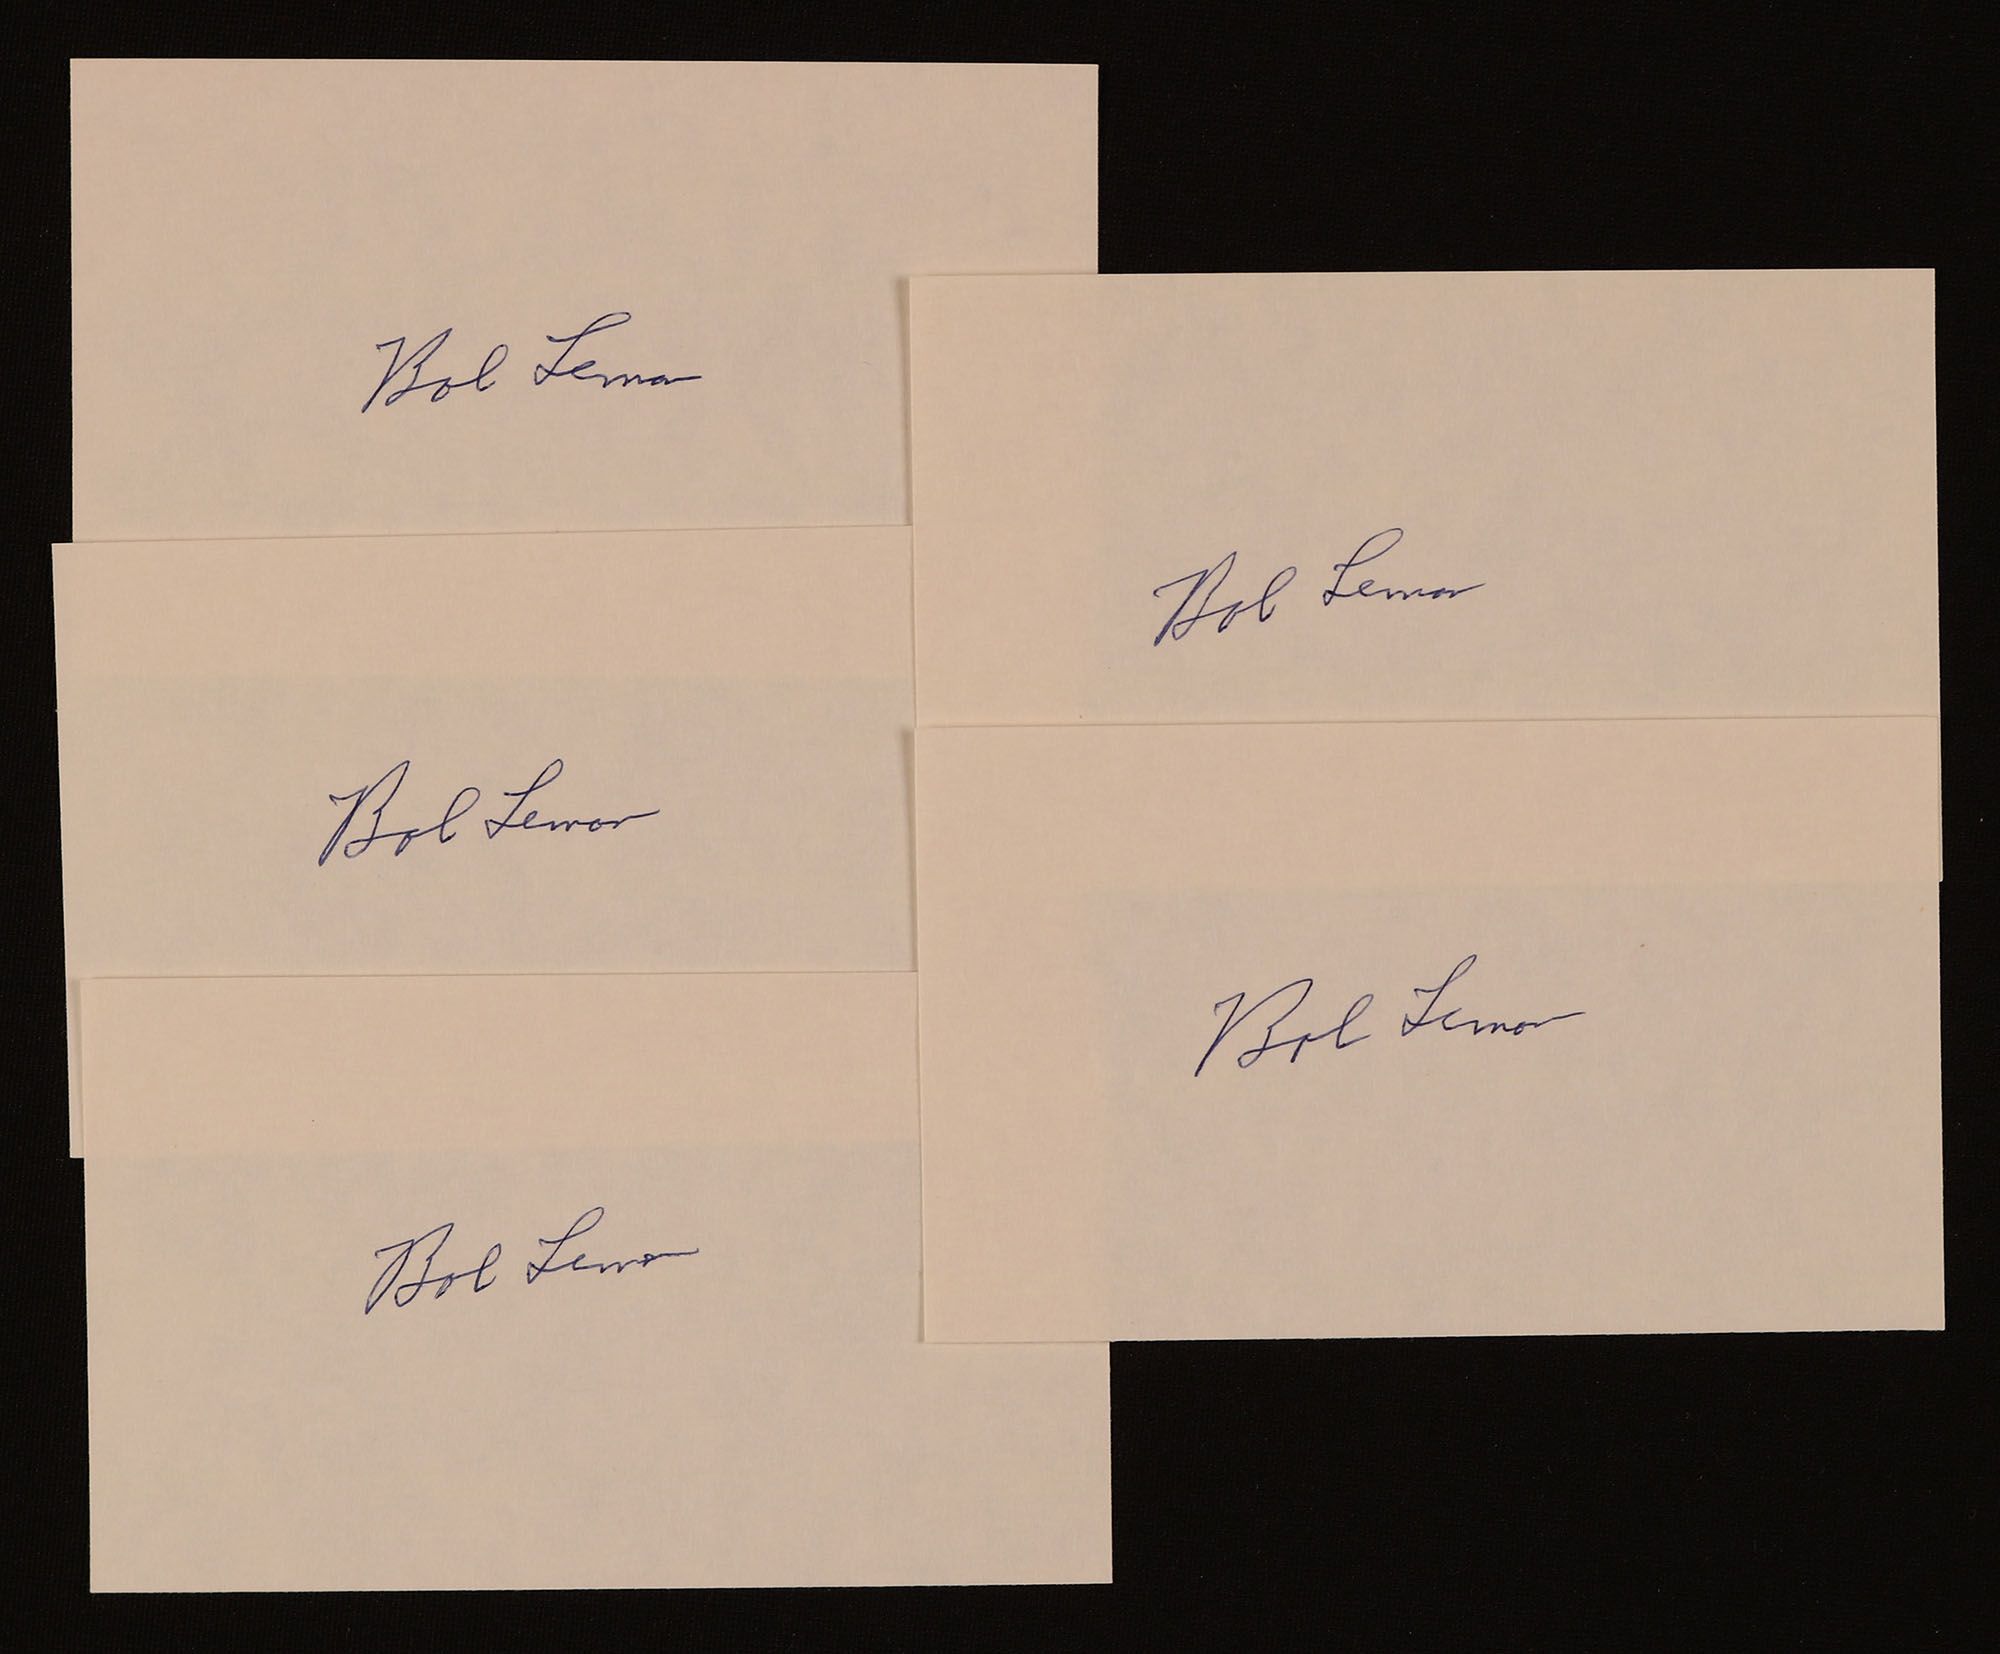 Bob Lemon
Bob Lemon
Bob Lemon
Bob Lemon
Bob Lemon